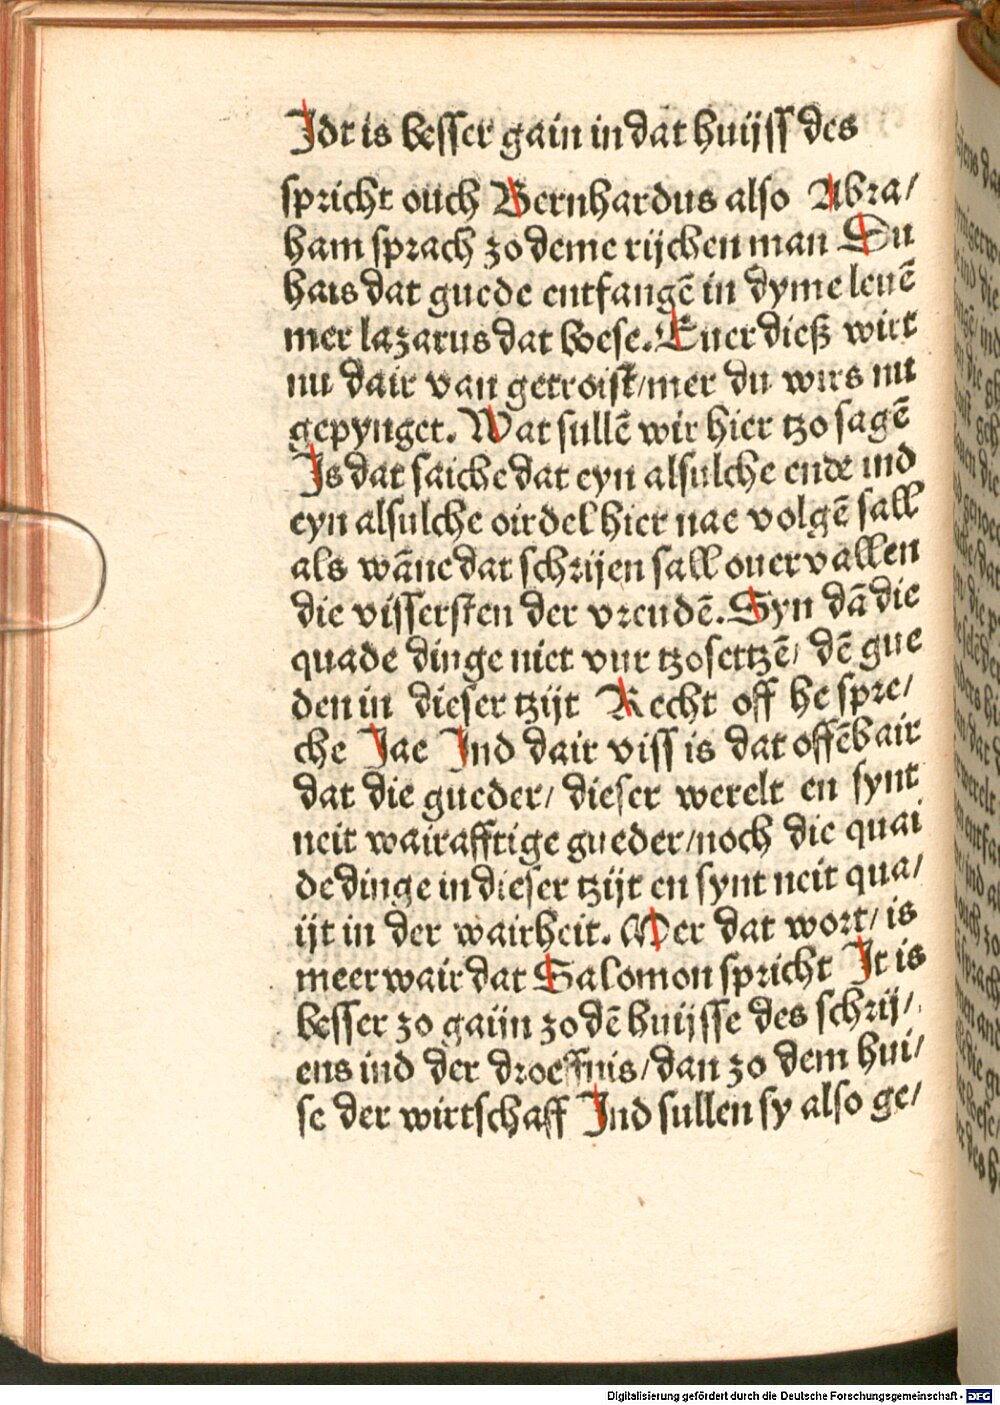 Idt is besser gain in dat huijss des
spricht ouch Bernhardus also Abra/
ham sprach zo deme rijchen man Du
hais dat guede entfangē in dyme leuē
mer lazarus dat boese. Euer dieß wirt
nu dair van getroist/mer du wirs nu
gepynget. Wat sullē wir hier tzo sagē
Is dat saiche dat eyn alsulche ende ind
eyn alsulche oirdel hier nae volgē sall
als wāne dat schrijen sall ouer vallen
die vissersten der vreudē. Syn dā die
quade dinge niet vur tzosettzē/ dē gue
den in dieser tzijt Recht off he spre/
che Jae Ind dair viss is dat offēbair
dat die gueder/ dieser werelt en synt
neit wairafftige gueder/noch die quai
de dinge in dieser tzijt en synt neit qua/
ijt in der wairheit. Mer dat wort/ is
meer wair dat Salomon spricht It is
besser zo gaün zo dē huijsse des schrij/
ens ind der droeffnis/dan zo dem hui/
se der wirtschaff Ind sullen sy also ge/
Digitalisierung gefördert durch die Deutsche Forschungsgemeinschaft - DFG